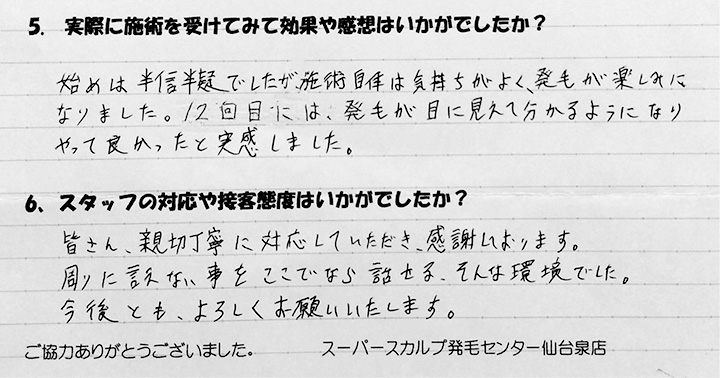 5. 実際に施術を受けてみて効果や感想はいかがでしたか？
始めは半信半疑でしたが、施術自体は気持ちがよく、発毛が楽しみに
なりました。12回目には、発毛が目に見えて分かるようになり
やって良かったと実感しました。
6、スタッフの対応や接客態度はいかがでしたか？
皆さん、親切丁寧に対応していただき、感謝しております。
周りに言えない事をここでなら話せる、そんな環境でした。
今後とも、よろしくお願いいたします。
ご協力ありがとうございました。 スーパースカルプ発毛センター仙台泉店